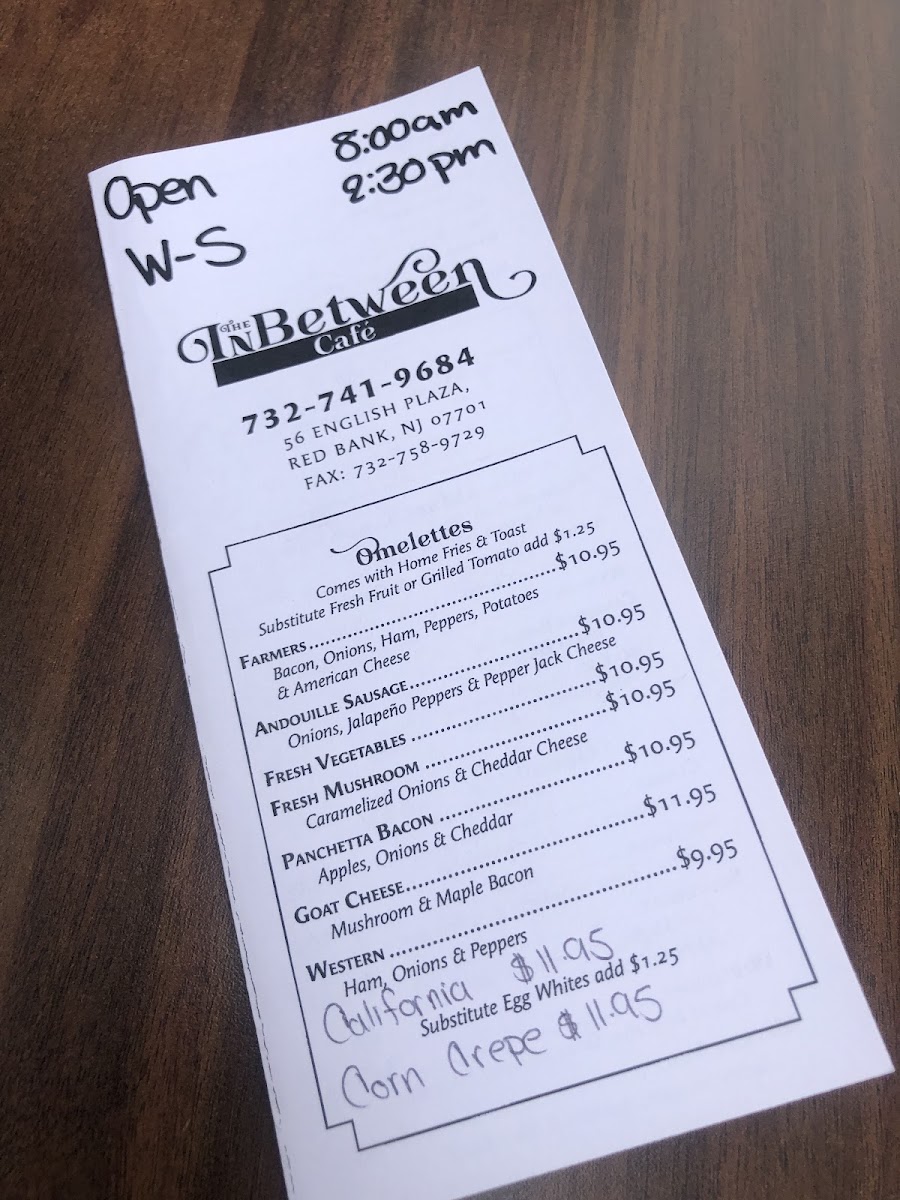 Open 8:00am
W-S 2:30pm
THE INBetween
Café
732-741-9684
56 ENGLISH PLAZA,
RED BANK, NJ 07701
FAX: 732-758-9729
Omelettes
Comes with Home Fries & Toast
Substitute Fresh Fruit or Grilled Tomato add $1.25
FARMERS..............................................$10.95
Bacon, Onions, Ham, Peppers, Potatoes
& American Cheese
ANDOUILLE SAUSAGE................................$10.95
Onions, Jalapeño Peppers & Pepper Jack Cheese
FRESH VEGETABLES ..................................$10.95
FRESH MUSHROOM ..................................$10.95
Caramelized Onions & Cheddar Cheese
PANCHETTA BACON ..................................$10.95
Apples, Onions & Cheddar
GOAT CHEESE..........................................$11.95
Mushroom & Maple Bacon
WESTERN ..............................................$9.95
Ham, Onions & Peppers
California $11.95
Substitute Egg Whites add $1.25
Corn Crepe $11.95